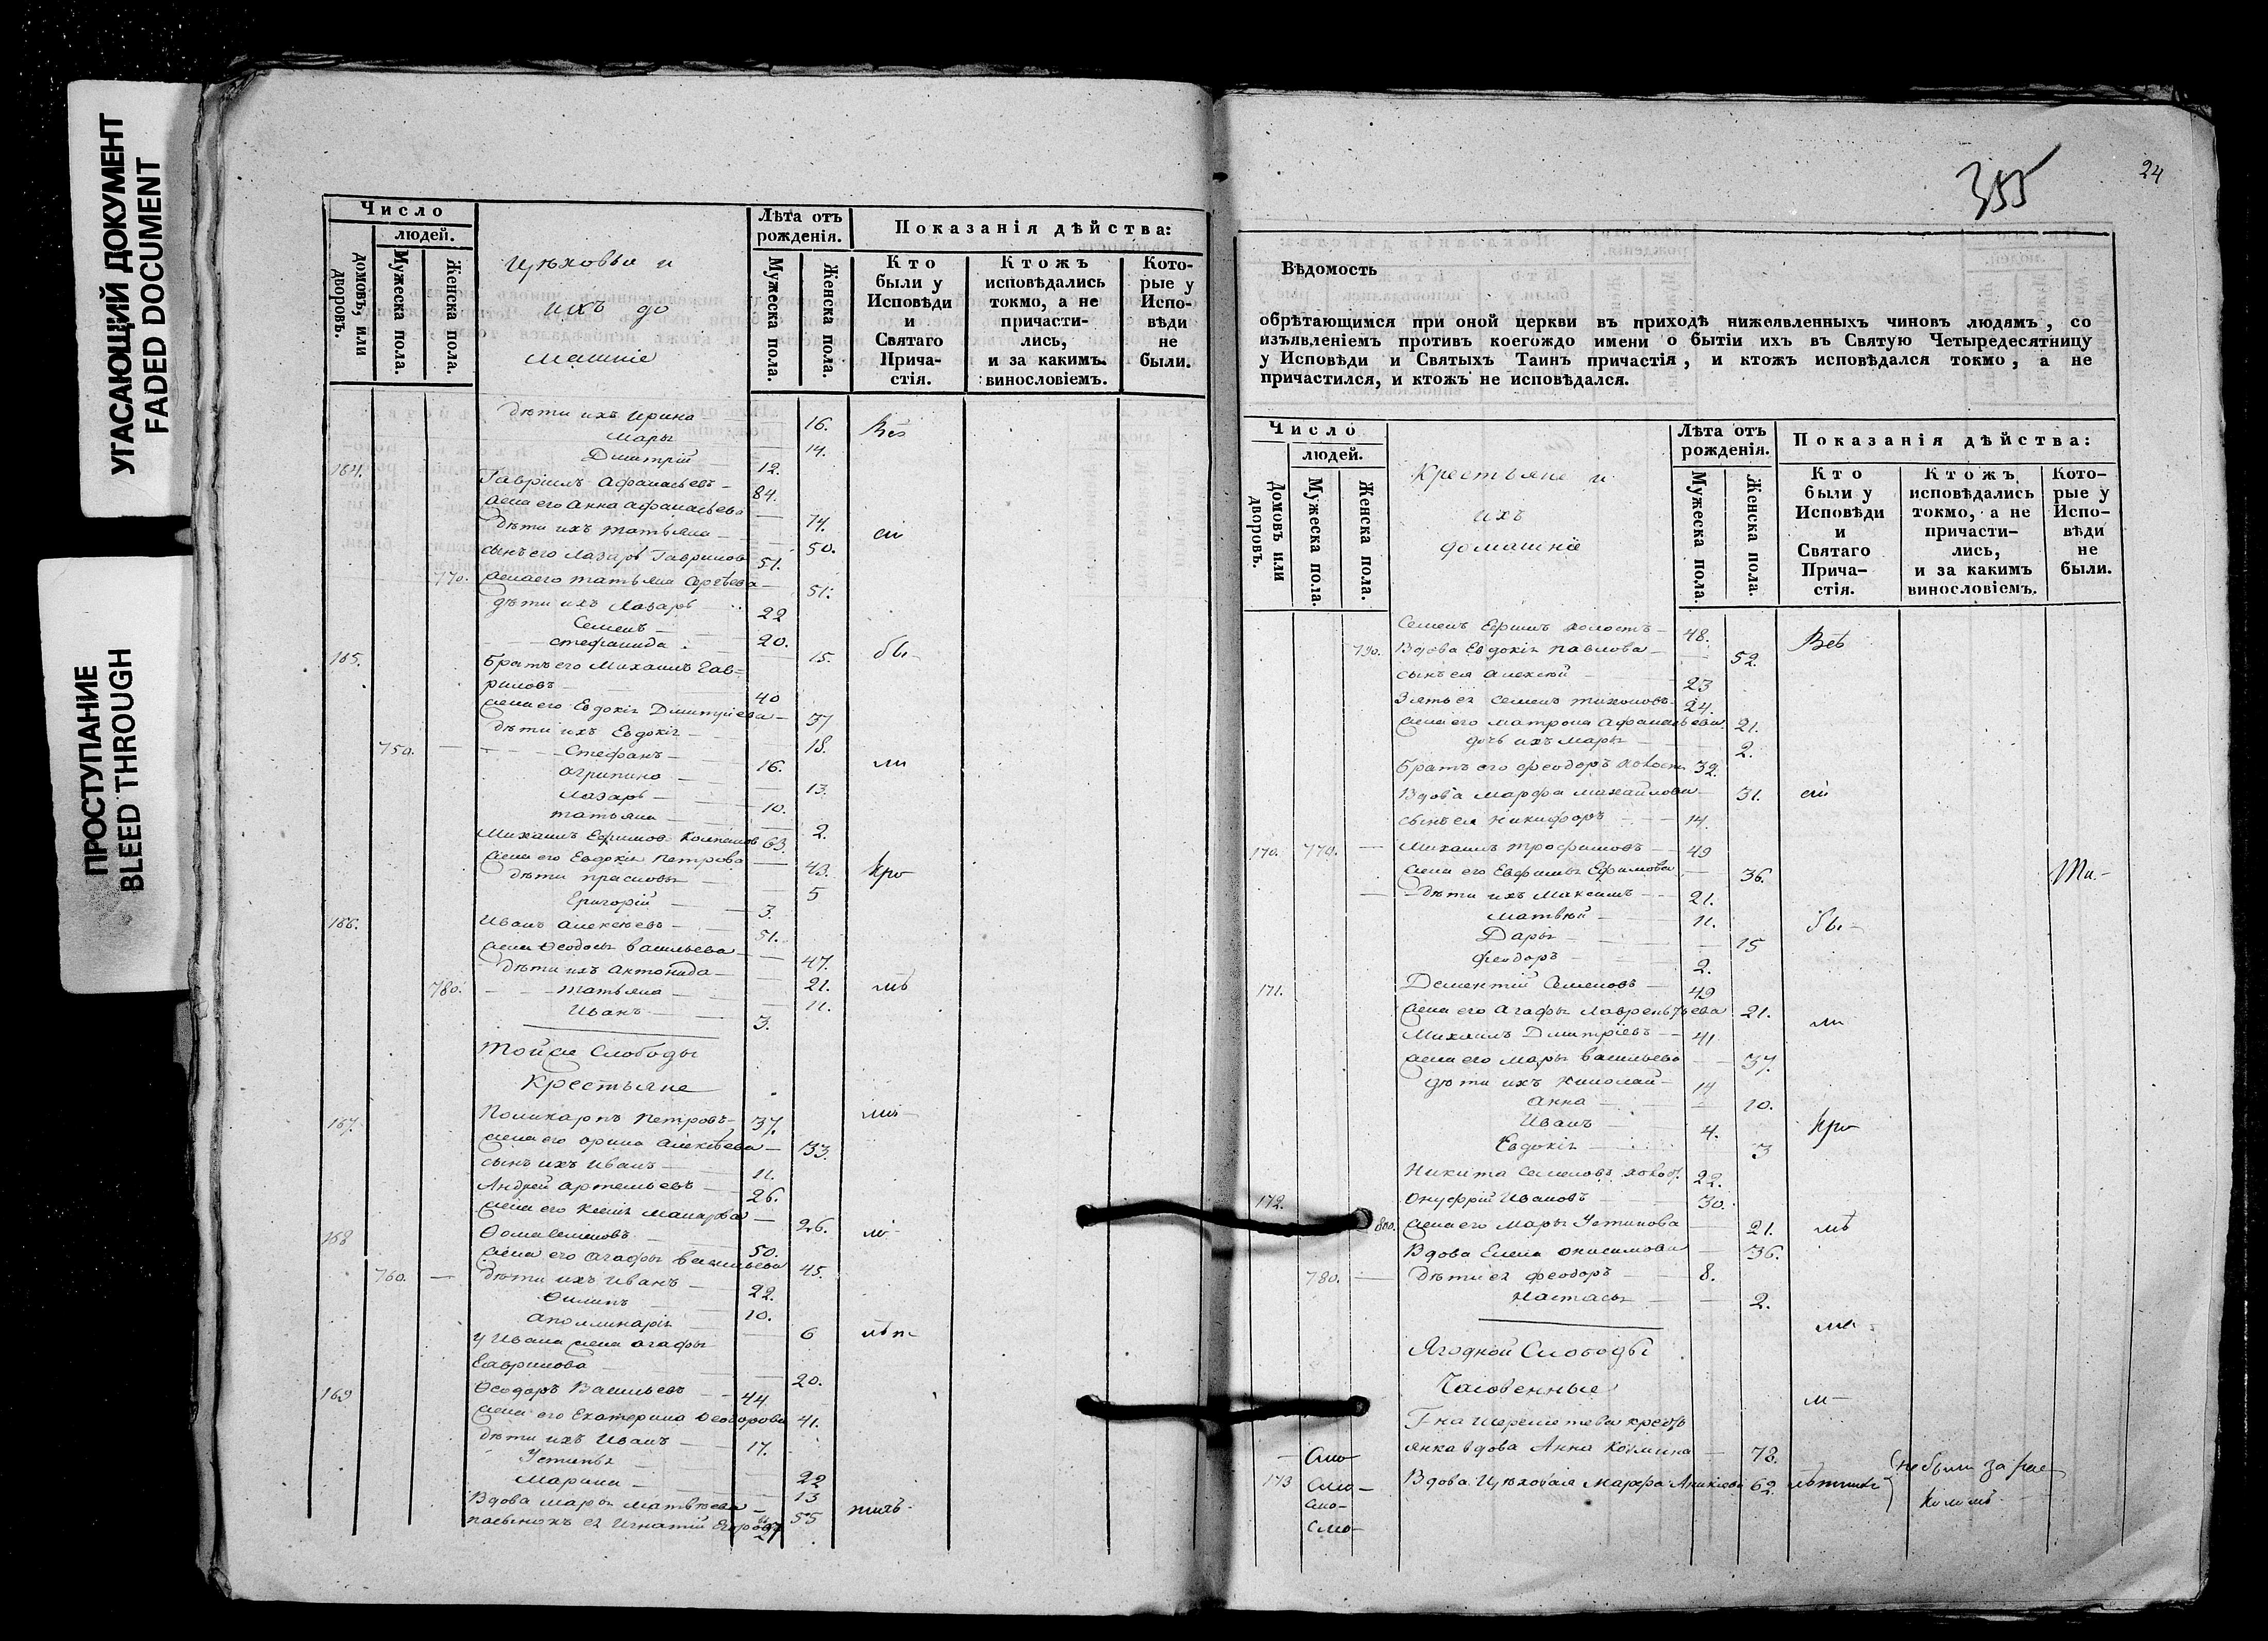 УГАСАЮЩИЙ ДОКУМЕНТ
FADED DOCUMENT
ПРОСТУПАНИЕ
BLEED THROUGH
Число
людей.
домовъ, или дворовъ.
Мужеска пола.
Женска пола.
Цѣховыя и
ихъ до
машніе
Лѣта отъ рожденія.
Мужеска пола.
Женска пола.
Показанія дѣйства:
Кто были у Исповѣди и Святаго Прича- стія.
Ктожъ исповѣдались токмо, а не причасти- лись, и за какимъ винословіемъ.
Кото- рые у Испо- вѣди не были.
дѣти ихъ Ирина 16. Всѣ
Марья 14.
Димитрій 12.
164. Гавріилъ Афанасьевъ 84.
жена его Анна Афанасьева 74.
дѣти ихъ Татьяна 50. сіи
сынъ его Лазарь Гавриловъ 51.
770. жена его Татьяна 51.
дѣти ихъ Лазарь 22
Семенъ 20.
Стефанида 15. бы-
165. Братъ его Михаилъ Гав-
риловъ 40
жена его Евдокія Димитріева 37
дѣти ихъ Евдокія 18.
750. Стефанъ 16. ли
Агрипина 13.
Лазарь 10.
Татьяна 2.
Михаилъ Ефимовъ 63.
жена его Евдокія Петрова 43. кро
дѣти Прасковья 5
Григорій 3.
166. Иванъ Алексѣевъ 51.
жена Ѳеодосья Васильева 47.
дѣти ихъ Антонида 21. мѣ
780. Татьяна 11.
Иванъ 3.
Той же Слободы
Крестьяне
167. Поликарпъ Петровъ 37.
жена его Орина Алексѣева 33.
сынъ ихъ Иванъ 11.
Андрей Артемьевъ 26.
жена его Ксенія Макарова 26.
168 Ѳома Семеновъ 50.
жена его Агафья Васильева 45.
760. дѣти ихъ Иванъ 22.
Филипъ 10.
Аполлинарія 6
у Ивана жена Агафья
Гаврилова 20.
169 Ѳеодоръ Васильевъ 44.
жена его Екатерина Ѳеодорова 41.
дѣти ихъ Иванъ 17.
Устинья 22
Марина 13
Вдова Марья Матвѣева 55
пасынокъ ея Игнатій Егоровъ 27
355
24
Вѣдомость
обрѣтающимся при оной церкви въ приходѣ нижеявленныхъ чиновъ людямъ, со
изъявленіемъ противъ коегождо имени о бытіи ихъ въ Святую Четыредесятницу
у Исповѣди и Святыхъ Таинъ причастія, и ктожъ исповѣдался токмо, а не
причастился, и ктожъ не исповѣдался.
Число
людей.
Домовъ или дворовъ.
Мужеска пола.
Женска пола.
Крестьяне и
ихъ
домашніе
Лѣта отъ рожденія.
Мужеска пола.
Женска пола.
Показанія дѣйства:
Кто были у Исповѣди и Святаго Прича- стія.
Ктожъ исповѣдались токмо, а не причасти- лись, и за какимъ винословіемъ.
Кото- рые у Испо- вѣди не были.
Семенъ холостъ 48. Всѣ
790. Вдова Евдокія Павлова 52.
сынъ ея Алексѣй 23
Зять ея Семенъ Тихоновъ 24.
жена его Матрона Афанасьева 21.
дочь ихъ Марья 2.
Братъ его Феодоръ холостъ 32.
Вдова Марфа Михайлова 31. сіи
сынъ ея Никифоръ 14.
170. 770. Михаилъ Трофимовъ 49
жена его Евфимья Ефимова 36.
дѣти ихъ Максимъ 21.
Матвѣй 11. бы-
Дарья 15
Феодоръ 2.
171. Дементій Семеновъ 49
жена его Агафья Лаврентьева 21. ли
Михаилъ Димитріевъ 41
жена его Марья Васильева 37.
дѣти ихъ Николай 14
Анна 10.
Иванъ 4. кро
Евдокія 3
Никита Семеновъ холост. 22.
172. Онуфрій Ивановъ 30.
800. жена его Марья Устинова 21. мѣ
Вдова Елена Онисимова 36.
780. дѣти ея Феодоръ 8.
Настасья 2.
Ягодной Слободы
Г-на Шереметева кресть
янка вдова Анна Козмина 78.
173 Вдова Цѣховая Марфа 62. не были за рас-
коломъ